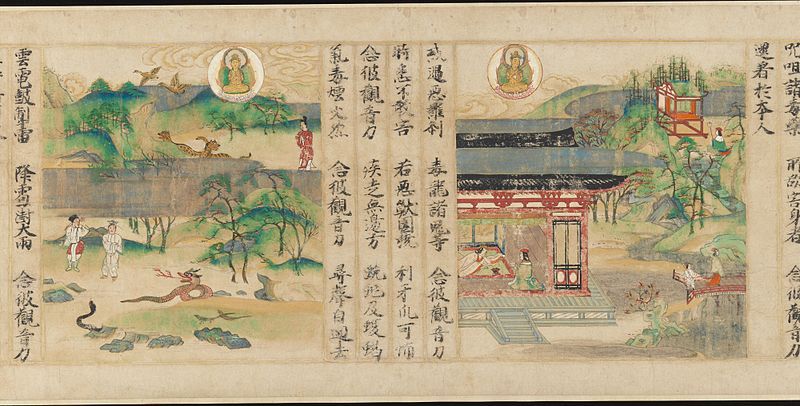 呪咀諸毒藥 所欲害身者 念彼觀音力
還著於本人
或遇惡羅刹 毒龍諸鬼等 念彼觀音力
時悉不敢害 若惡獸圍繞 利牙爪可怖
念彼觀音力 疾走無邊方 蚖蛇及蝮蝎
氣毒煙火然 念彼觀音力 尋聲自迴去
雲雷鼓掣電 降雹澍大雨 念彼觀音力